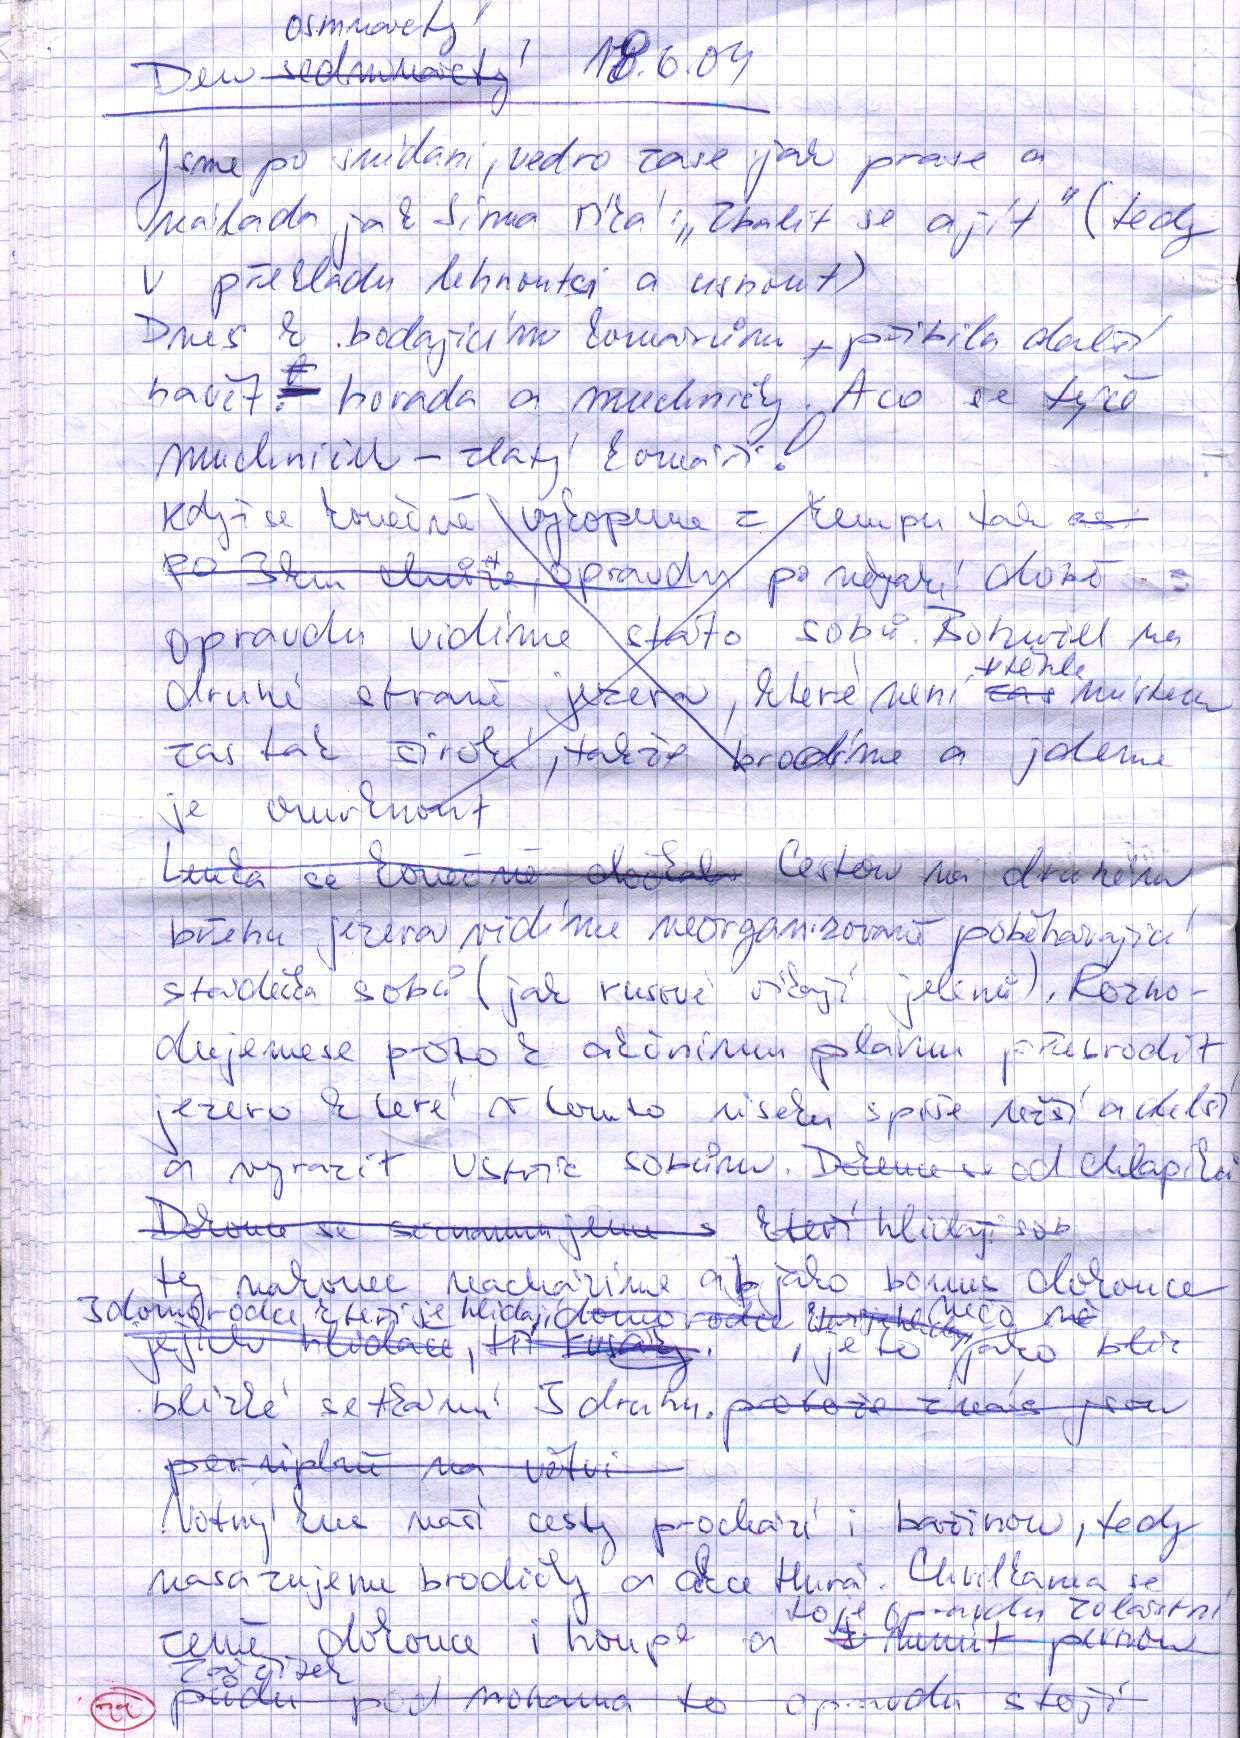 osmnáctý
Den sedmnáctý 18.6.04
Jsme po snídani, vedro zase jak prase a
nálada jak Síma říká: „zbalit se a jít" (tedy
v překladu lehnout si a usnout)
Dnes k bodajícímu komárům přibila další
havěť: hovada a muchničky. A co se týče
muchniček – zlatý komáři!
Když se konečně vykopeme z kempu tak
po 3km chůze opravdu po nějaké době
opravdu vidíme stádo sobů. Bohužel na
druhé straně jezera, které není zas místem
zas tak široké, takže brodíme a jdeme
je omrknout
se konečně dočkala Cestou na druhém
břehu jezera vidíme neorganizovaně pobíhající
stádečka sobů (jak rusové říkají jelenů). Rozho-
dujeme se proto k akčnímu plánu přebrodit
jezero které v tomto úseku spíše užší a delší
a vyrazit vstříc sobům. od chlapíků
Dokonce se seznamujeme s kteří hlídají sob
ty nakonec nacházíme a jako bonus dokonce
3 domorodce kteří je hlídají domorodce
jejich hlídače, tři rusáky. , je to jako
blízké setkání 3 druhu. protože z nás jsou
na větvi
Notný kus naší cesty prochází i bažinou, tedy
nasazujeme brodičky a akce Hurá. Chvílkama se
to je opravdu zvláštní
země dokonce i houpe a pevnou
zážitek
půdu pod nohama to opravdu stojí